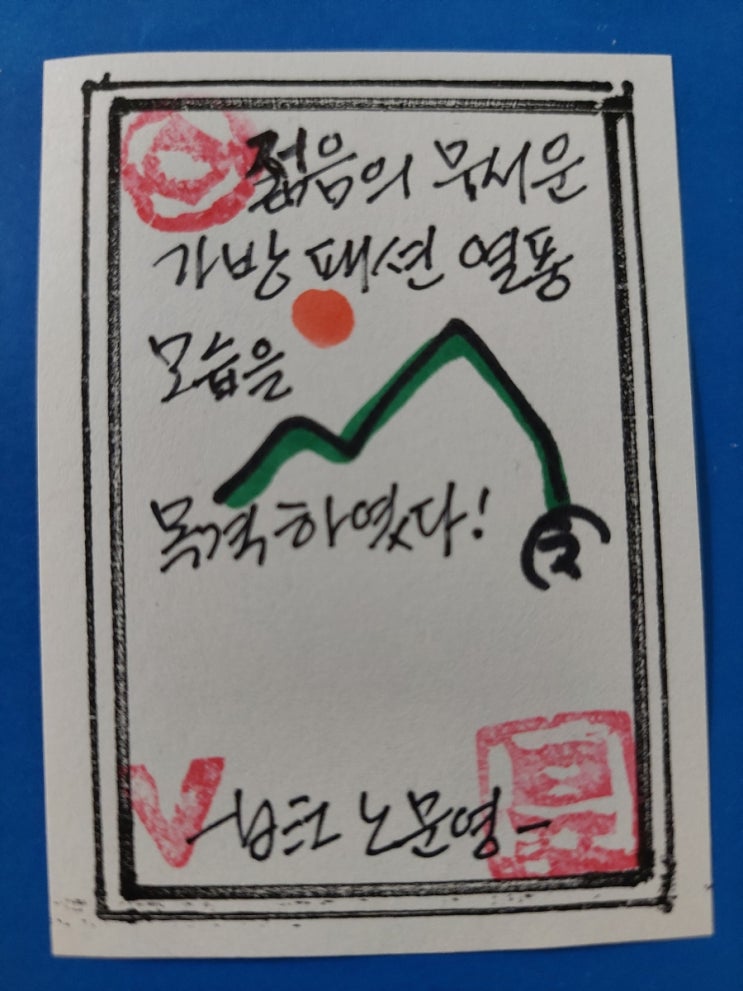 젊음의 무서운
가방 패션 열풍
모습을
목격하였다!
노문영-